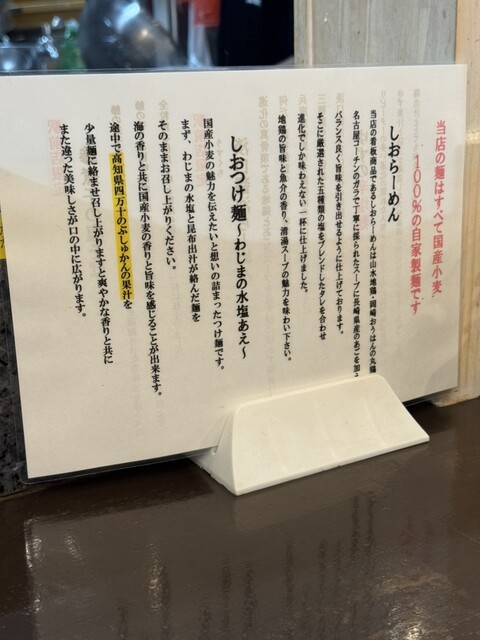 当店の麺はすべて国産小麦
100%の自家製麺です
しおらーめん
当店の看板商品であるしおらーめんは山水地鶏・岡崎おうはんの丸鶏
名古屋コーチンのガラで丁寧に採られたスープに長崎県産のあごを加え
バランス良く旨味を引き出せるように仕上げております。
そこに厳選された五種類の塩をブレンドしたタレを合わせ
進化でしか味わえない一杯に仕上げました。
地鶏の旨味と魚介の香り、清湯スープの魅力を味わい下さい。
しおつけ麺〜わじまの水塩あえ〜
国産小麦の魅力を伝えたいと想いの詰まったつけ麺です。
まず、わじまの水塩と昆布出汁が絡んだ麺を
そのままお召し上がりください。
海の香りと共に国産小麦の香りと旨味を感じることが出来ます。
途中で高知県四万十のぶしゅかんの果汁を
少量麺に絡ませ召し上がりますと爽やかな香りと共に
また違った美味しさが口の中に広がります。